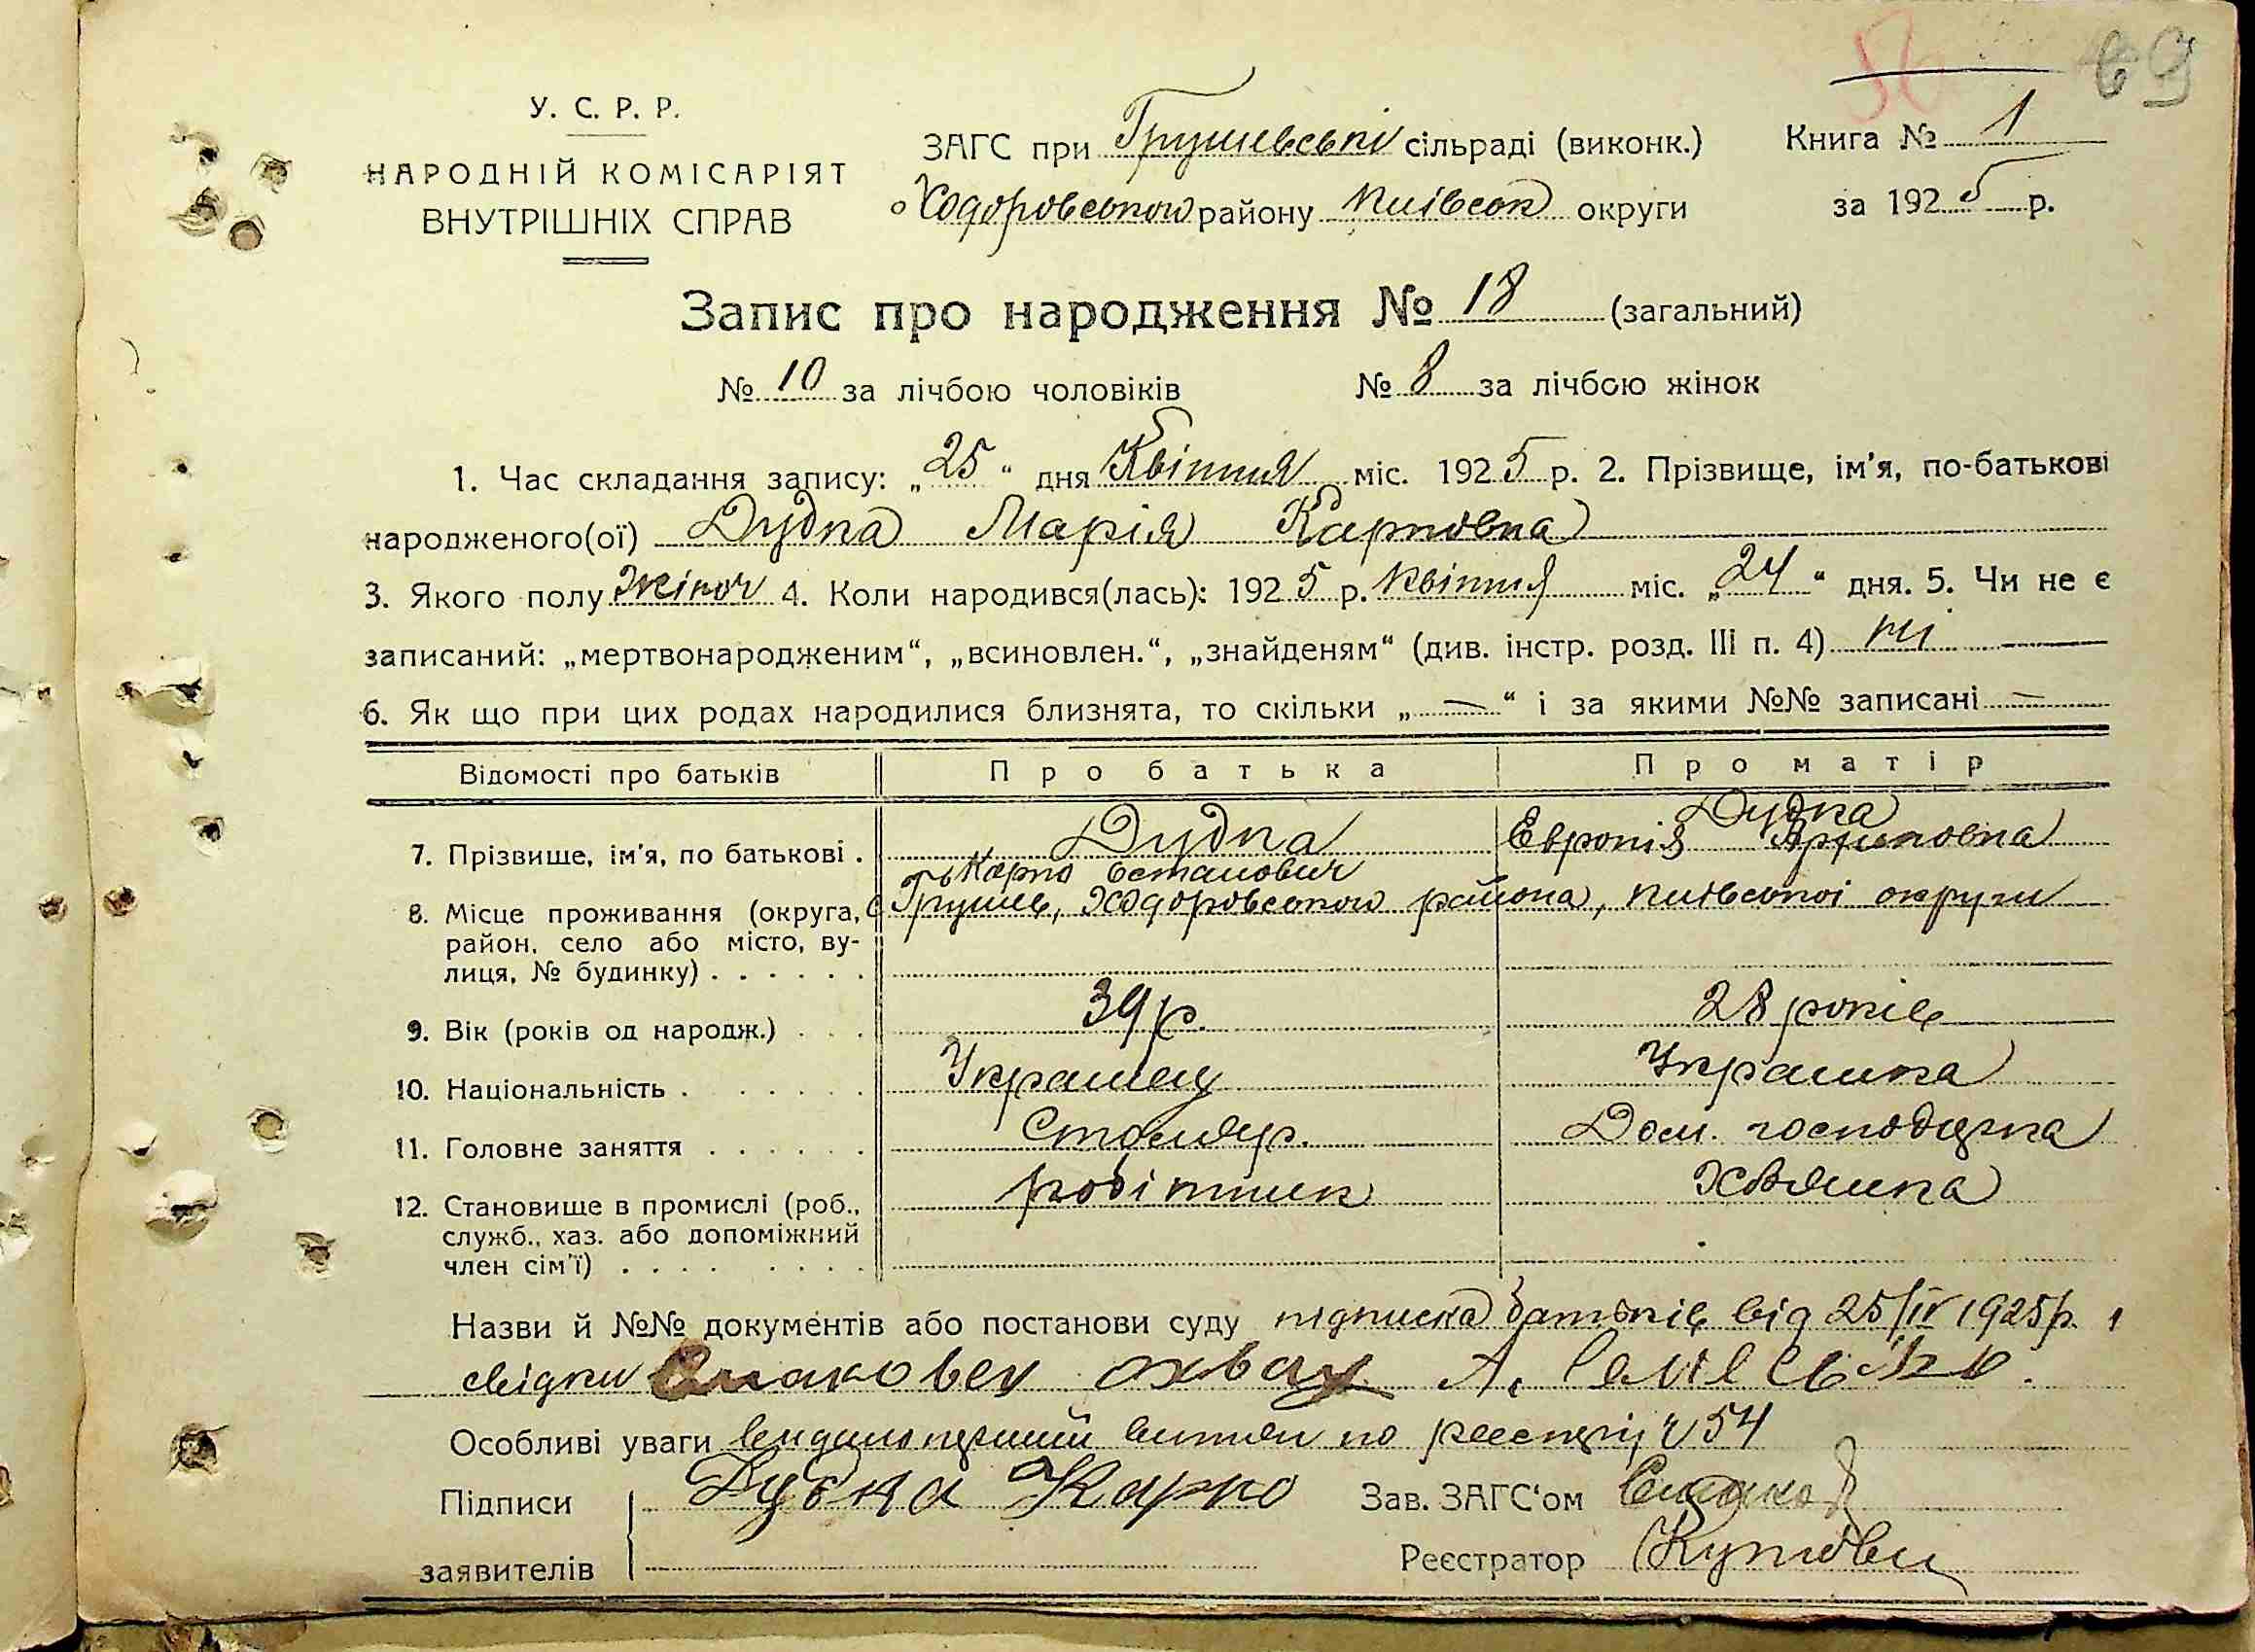 56 69
У. С. Р. Р.
НАРОДНІЙ КОМІСАРІЯТ
ВНУТРІШНІХ СПРАВ
ЗАГС при Грушевські сільраді (виконк.)
Ходоровського району Київськ округи
Книга № 1
за 1925 р.
Запис про народження № 18 (загальний)
№ 10 за лічбою чоловіків № 8 за лічбою жінок
1. Час складання запису: „25“ дня Квітня міс. 1925 р. 2. Прізвище, ім'я, по-батькові
народженого(ої) Дудка Марія Карповна
3. Якого полу жіноч 4. Коли народився(лась): 1925 р. квітня міс. „24“ дня. 5. Чи не є
записаний: „мертвонародженим“, „всиновлен.“, „знайденям“ (див. інстр. розд. III п. 4) ні
6. Як що при цих родах народилися близнята, то скільки „—“ і за якими №№ записані —
Відомості про батьків Про батька Про матір
7. Прізвище, ім'я, по батькові . Дудка Карпо Остапович Дудка
8. Місце проживання (округа, район, село або місто, ву-
лиця, № будинку) . . . . . . С Грушев, Ходоровського района, Київської округи
9. Вік (років од народж.) . . . 39 р. 28 років
10. Національність . . . . . . . Украинец Украинка
11. Головне заняття . . . . . . Столяр. Дом. господарка
12. Становище в промислі (роб.,
служб., хаз. або допоміжний
член сім'ї) . . . . . . . . робітник Хазяйка
Назви й №№ документів або постанови суду підписка батьків від 25/IV 1925 р. і
свідки А.
Особливі уваги видано перший витяг по реєстру ч 54
Підписи
заявителів
Дудка Карпо
Зав. ЗАГС'ом
Реєстратор